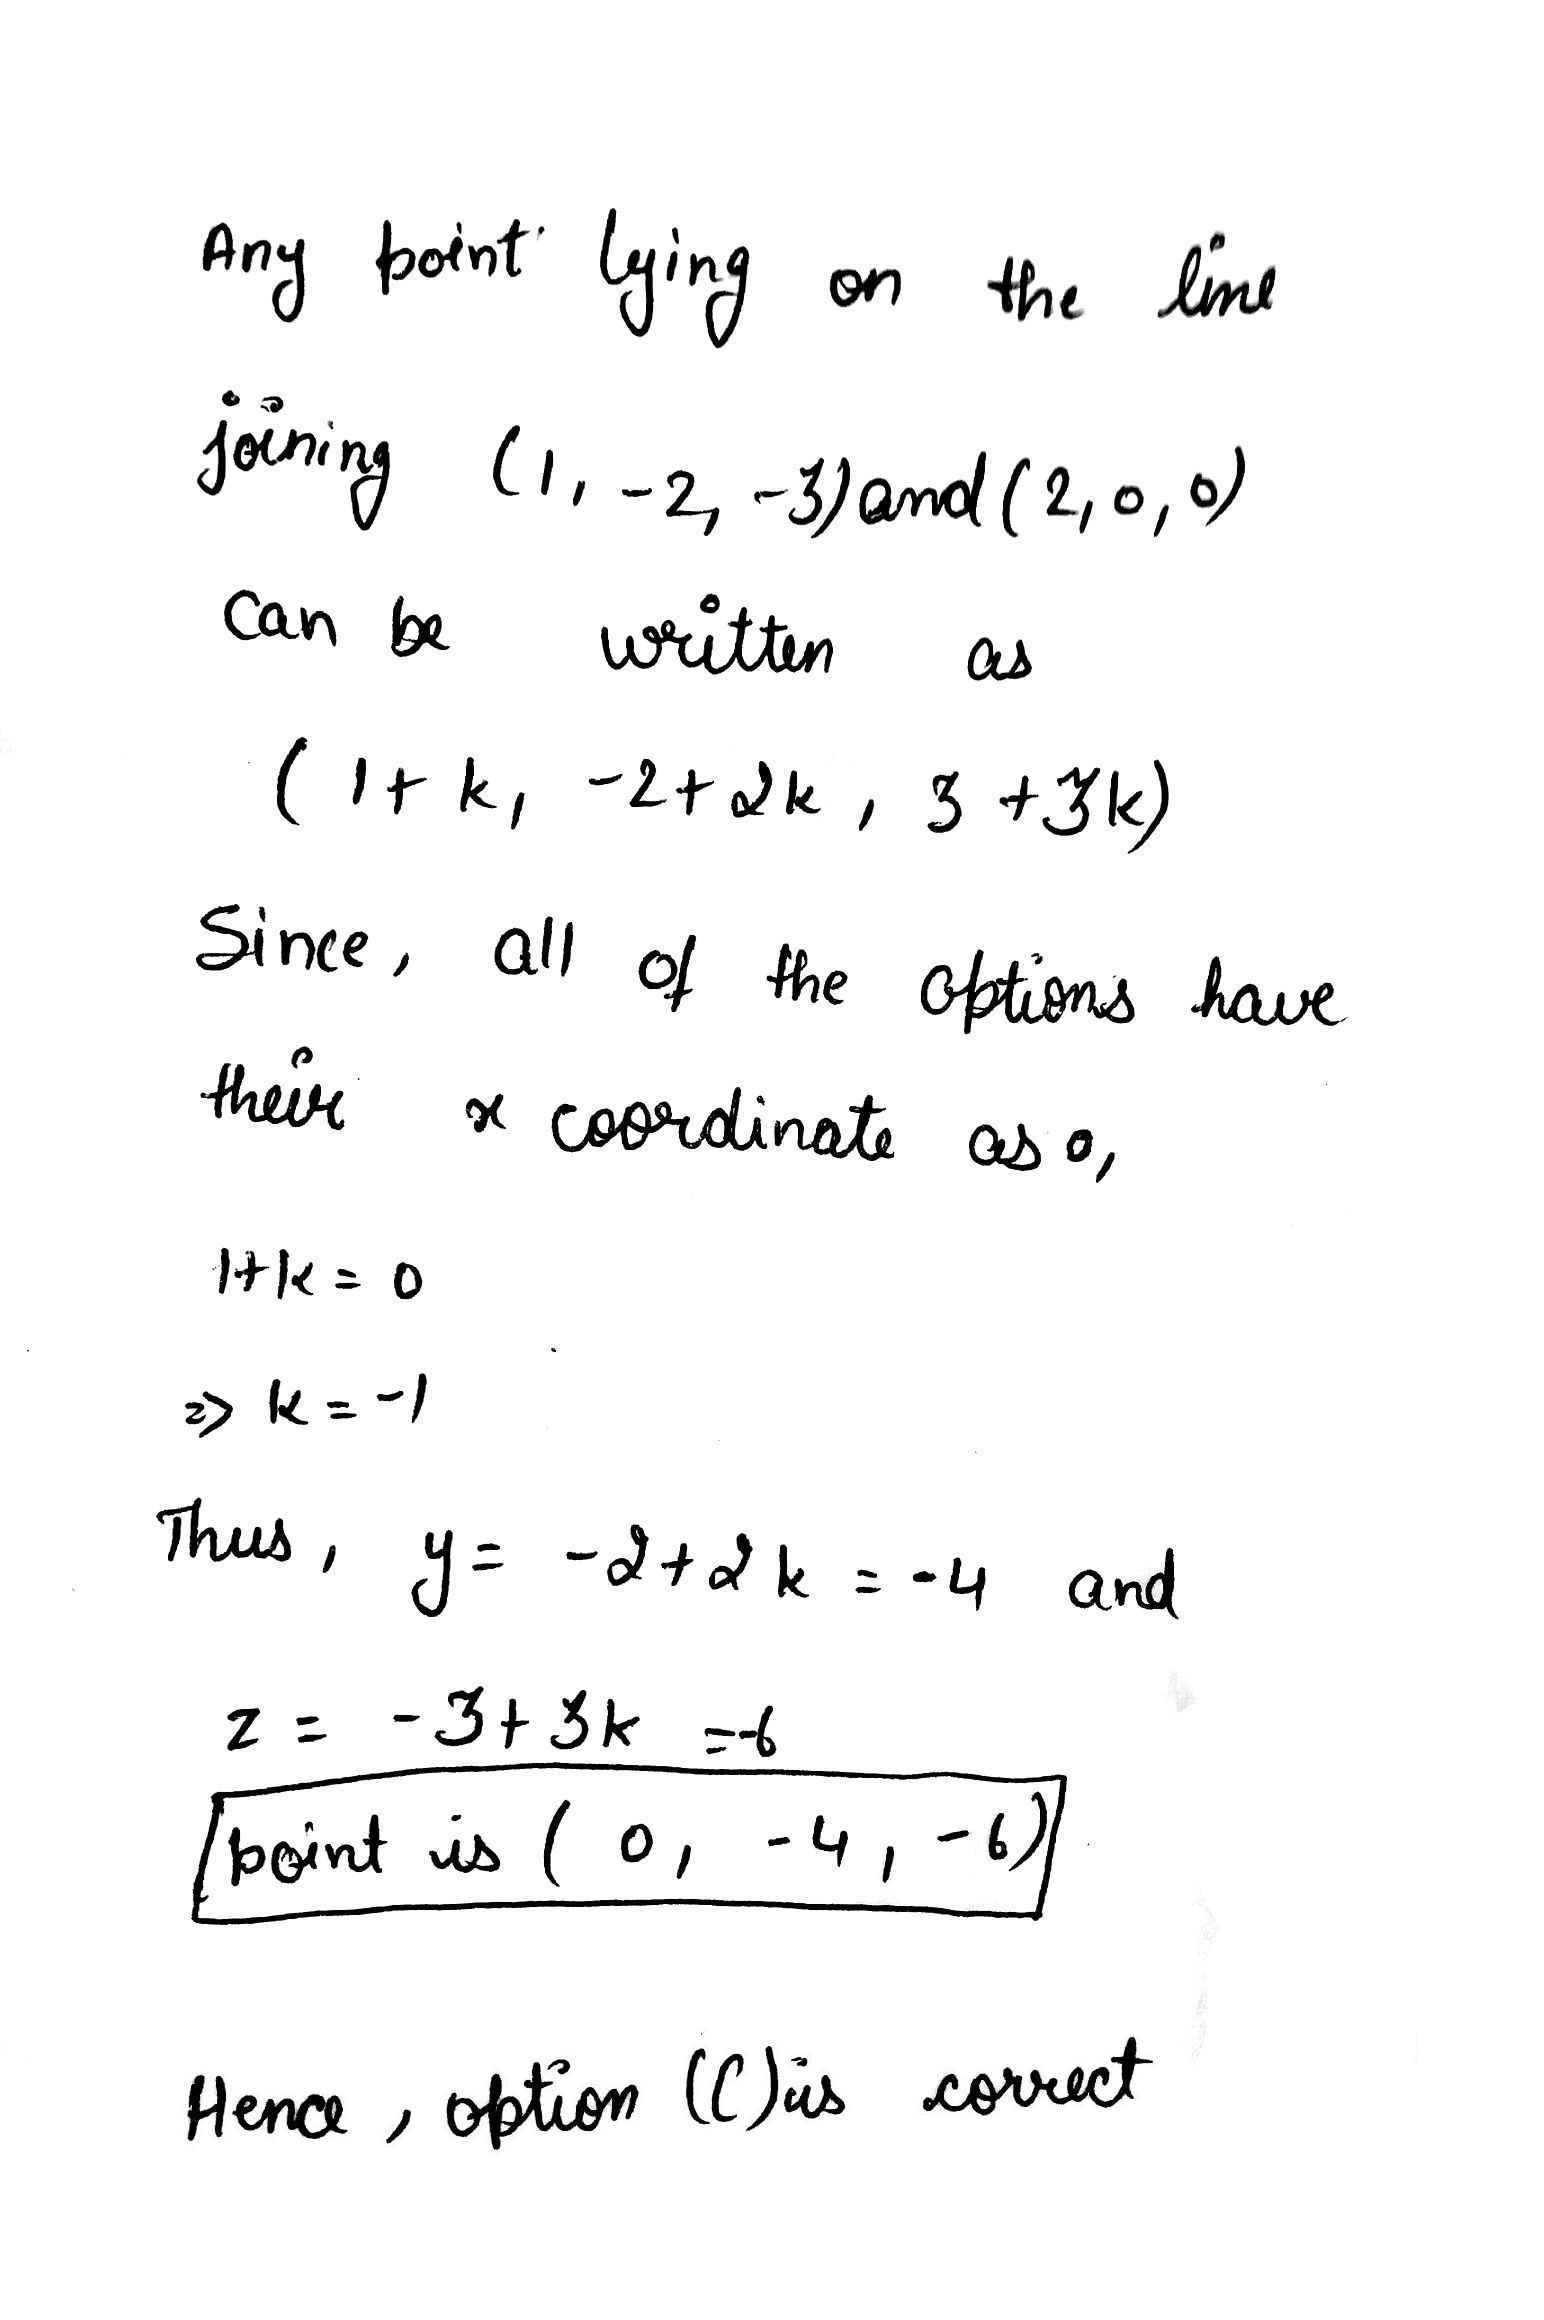 Any point lying on the line
joining (1, -2, -3) and (2, 0, 0)
Can be written as
( 1+ k, -2+2k, 3 +3k)
Since, all of the options have
their x coordinate as 0,
1+k = 0
=> k = -1
Thus, y = -2+2k = -4 and
z = -3+3k =-6
point is ( 0, -4, -6)
Hence, option (C) is correct